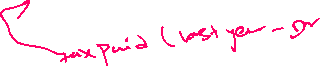 tax paid (last year - Dr